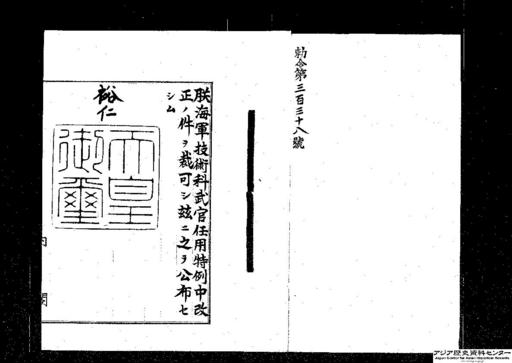 勅令第三百三十八號
朕海軍技術科武官任用特例中改
正ノ件ヲ裁可シ茲ニ之ヲ公布セ
シム
裕仁
天皇
御璽
内閣
アジア歴史資料センター
Japan Center for Asian Historical Records